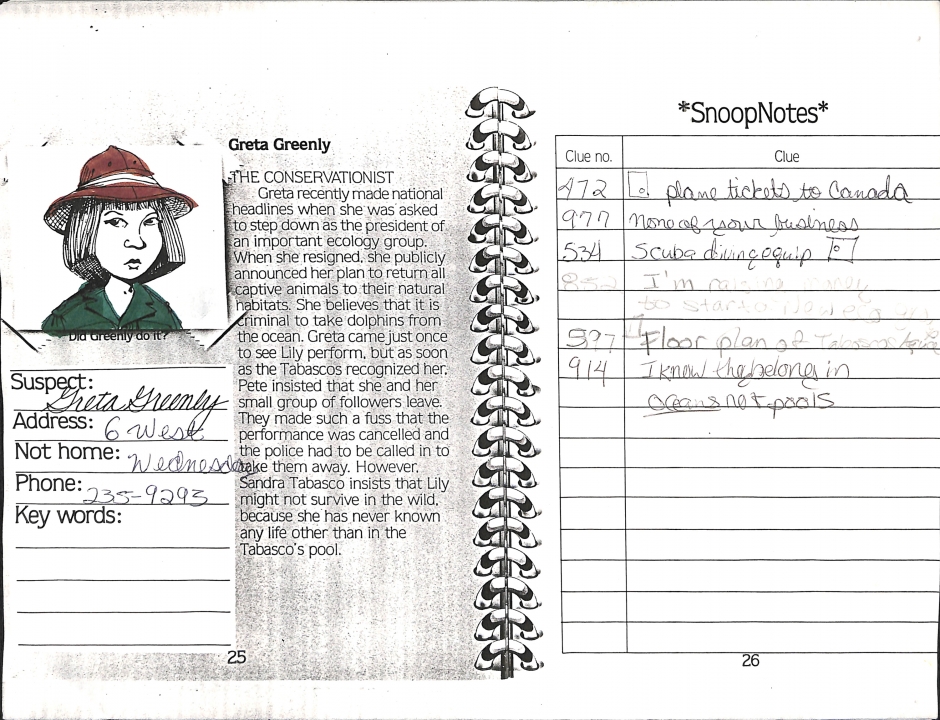 Greta Greenly
THE CONSERVATIONIST
Greta recently made national
headlines when she was asked
to step down as the president of
an important ecology group.
When she resigned, she publicly
announced her plan to return all
captive animals to their natural
habitats. She believes that it is
criminal to take dolphins from
the ocean. Greta came just once
to see Lily perform, but as soon
as the Tabascos recognized her,
Pete insisted that she and her
small group of followers leave.
They made such a fuss that the
performance was cancelled and
the police had to be called in to
take them away. However,
Sandra Tabasco insists that Lily
might not survive in the wild,
because she has never known
any life other than in the
Tabasco's pool.
Did Greenly do it?
Suspect: Greta Greenly
Address: 6 West
Not home: Wednesday
Phone: 235-9293
Key words:
25
*SnoopNotes*
Clue no. Clue
472 plane tickets to Canada
977 None of your business
534 Scuba diving equip
852 I'm raising money
to start a new
597 Floor plan of
914 I know they belong in
oceans not pools
26